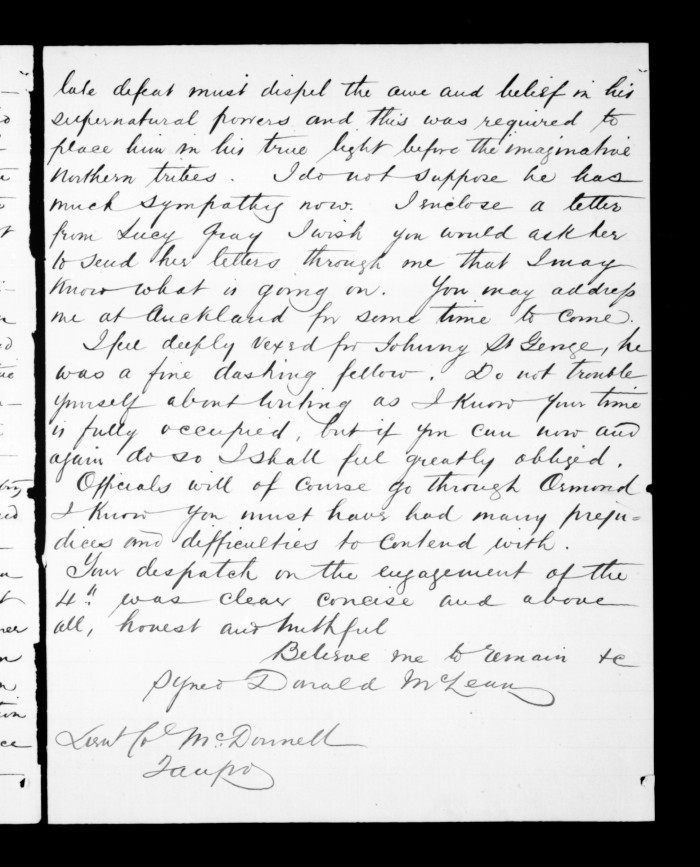 late defeat must dispel the awe and belief in his
supernatural powers and this was required to
place him in his true light before the imaginative
Northern tribes. I do not suppose he has
much sympathy now. I enclose a letter
from Lucy Gray I wish you would ask her
to send her letters through me that I may
know what is going on. You may address
me at Auckland for some time to come.
I feel deeply vexed for Johnny St George, he
was a fine dashing fellow. Do not trouble
yourself about writing as I know your time
is fully occupied, but if you can now and
again do so I shall feel greatly obliged.
Officials will of course go through Ormond
I know you must have had many preju=
dices and difficulties to contend with.
Your despatch on the engagement of the
4th was clear concise and above
all, honest and truthful
Believe me to remain &c
Signed Donald McLean
Lieut Col McDonnell
Taupo